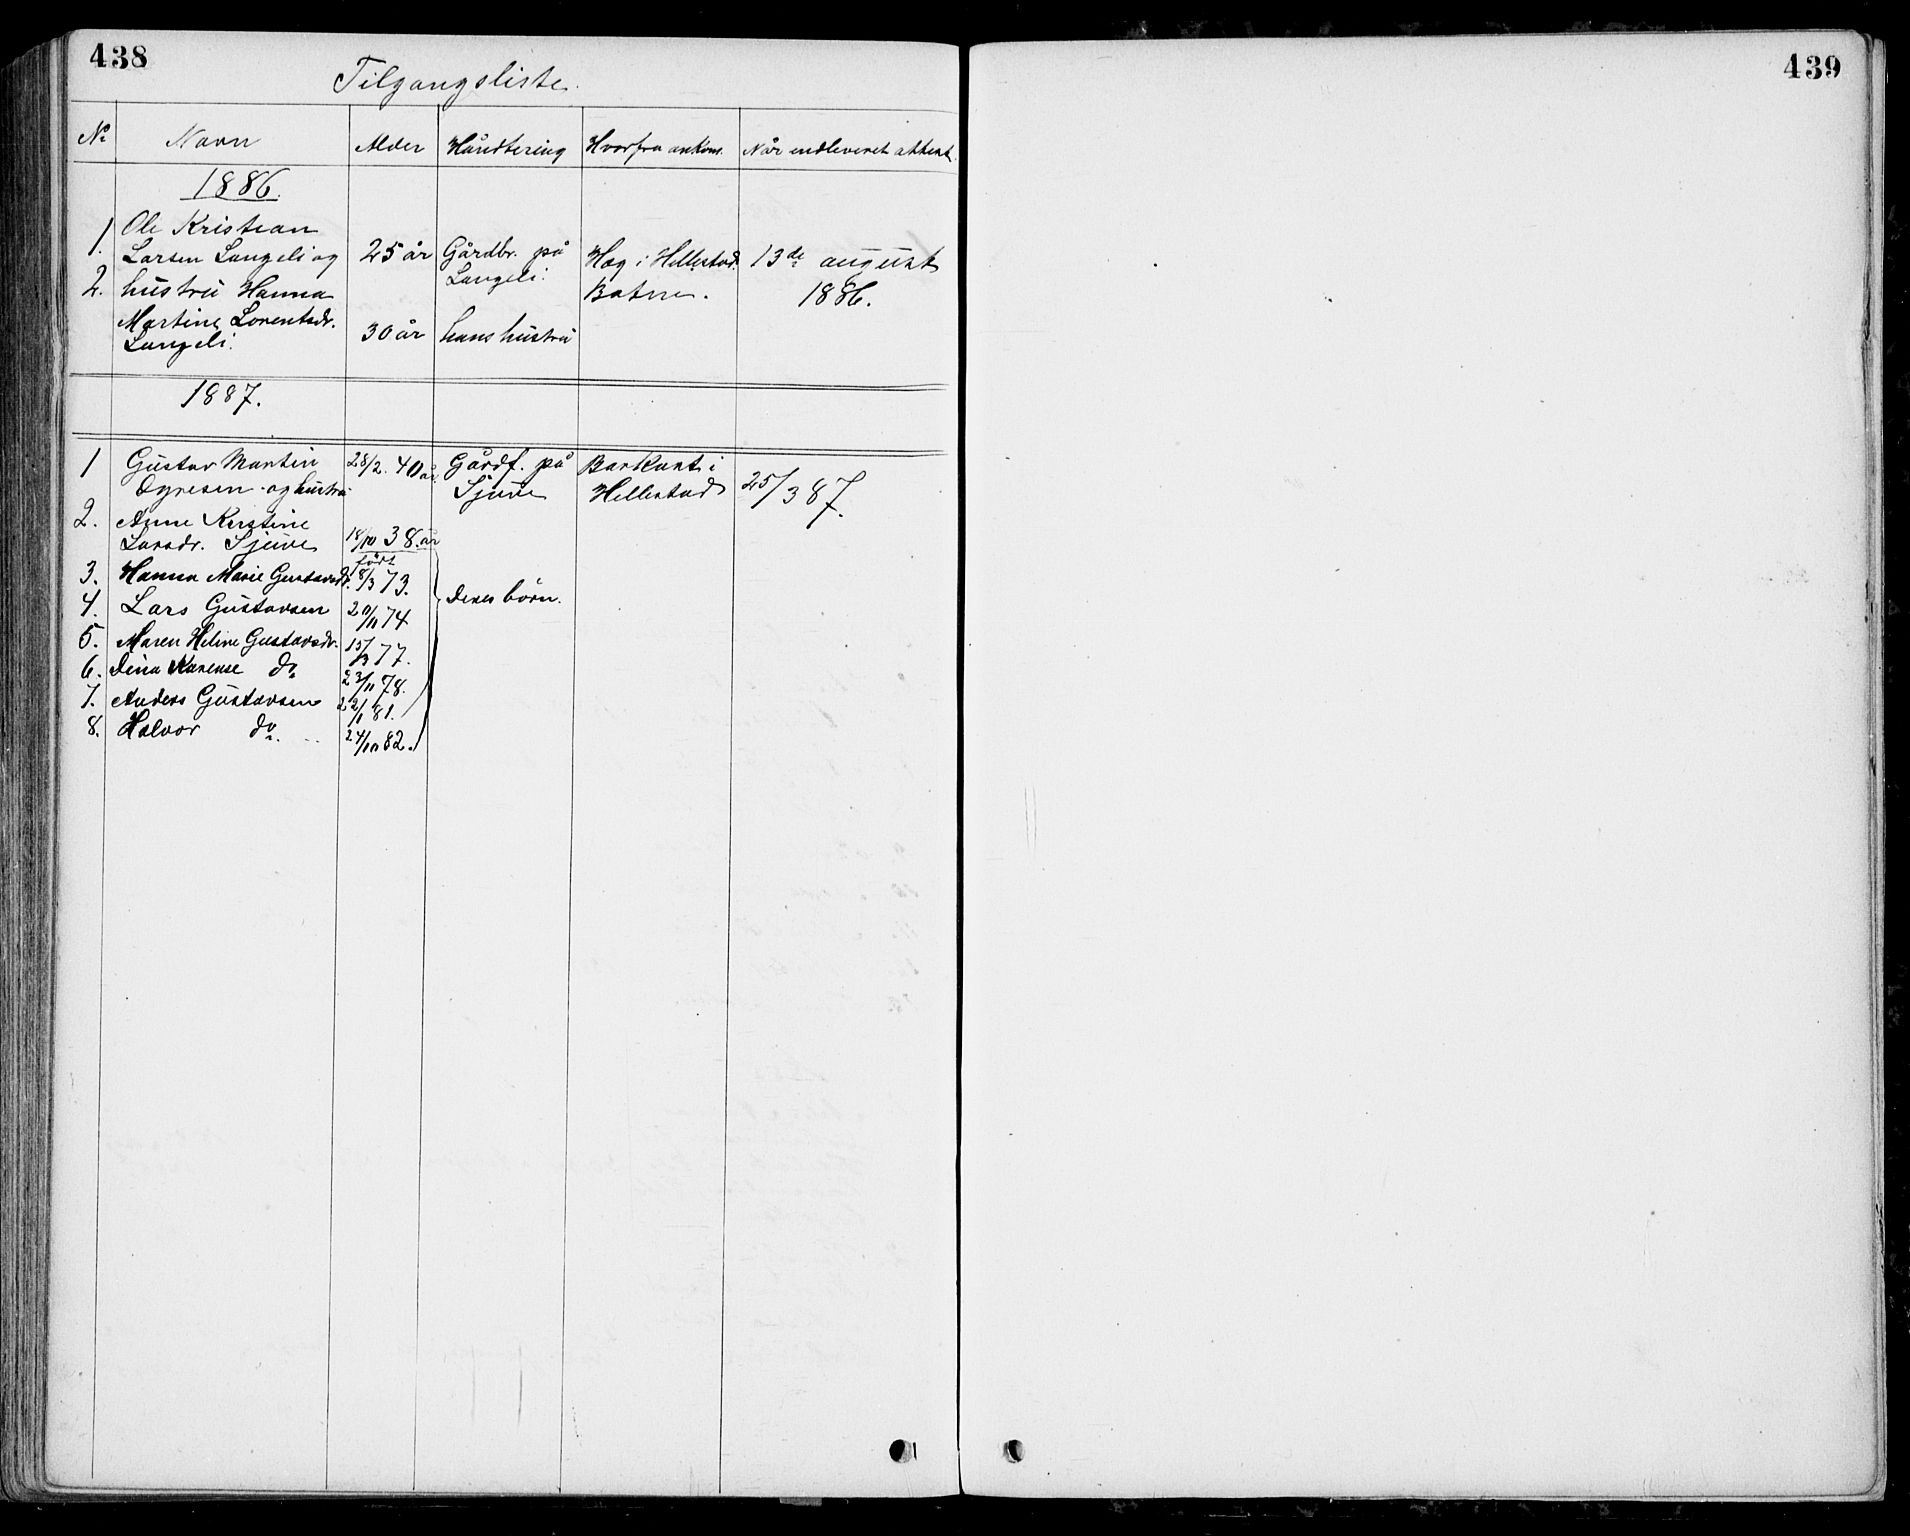 438
439
Tilgangsliste.
No Navn Alder Håndtering Hvorfra ankom. Når indleveret attest.
1886.
1. Ole Kristian
Larsen Langeli og 25 år Gårdbr. på Hag i Hillestad 13de august
Langeli.
2. hustru Hanna Botne. 1886.
Martine Lorentsdr.
Langeli. 30 år hans hustru
1887.
1 Gustav Martin 28/2. 40 år. Gårdf. på i
og hustru Sjue Hillestad 25/3 87.
2. Anne Kristine
Larsdr. Sjue 18/10 38. år
født
3. Hanna Marie Gustavsdr. 8/3 73.
4. Lars Gustavsen 74 Deres børn.
5. Maren Heline Gustavsdr. 15/3 77.
6. Dina Karense do 23/11 78.
7. Anders Gustavsen 22/1 81.
8. Halvor do. 24/10 82.